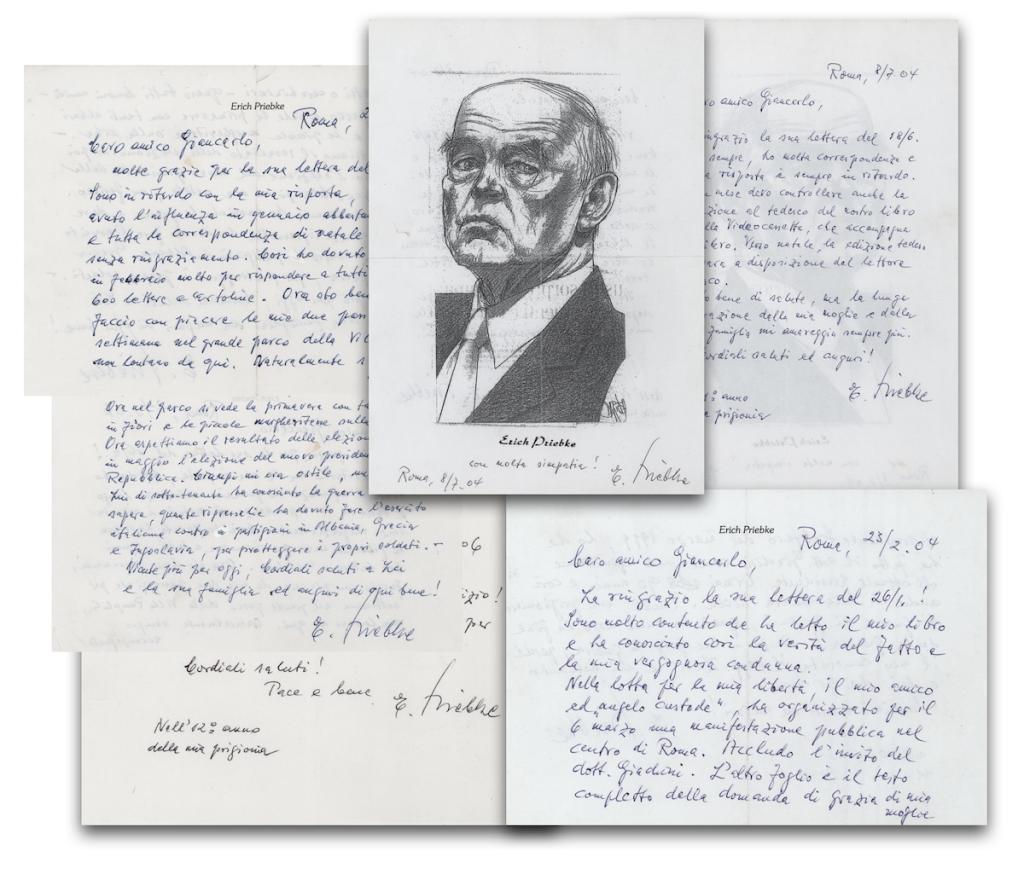 Erich Priebke
Roma, 2
Caro amico Giancarlo,
molte grazie per la sua lettera del
Sono in ritardo con la mia risposta,
avuto l'influenza in gennaio abbasta
e tutta la corrispondenza di natale
senza ringraziamento. Così ho dovuto
in febbraio molto per rispondere a tutti
600 lettere e cartoline. Ora sto ben
faccio con piacere le mie due pass
settimana nel grande parco della Vil
non lontano da qui. Naturalmente s
Ora nel parco si vede la primavera con ta
in fiori e le piccole margheritene sulla
Ora aspettiamo il resultato delle elezion
in maggio l'elezione del nuovo presiden
Repubblica. Ciampi mi era ostile, ma
Lui di sotto-tenente ha conosciuto la guerra
sapera, quante ripresselie ha dovuto fare l'esercito
italiano contro i partigiani in Albania, Grecia
e Jugoslavia, per protteggere i propri soldati. -
Niente più per oggi, Cordiali saluti a Lei
e la sua famiglia ed auguri di ogni bene!
E. Priebke
06
izio!
per
Cordiali saluti!
Pace e bene
E. Priebke
Nell'12º anno
della mia prigionia
Erich Priebke
con molta simpatia!
Roma, 8/7.04
E. Priebke
Roma, 8/7.04
ro amico Giancarlo,
ingrazio la sua lettera del 18/6.
sempre, ho molta corrispondenza e
a risposta è sempre in ritardo.
mese devo controllare anche la
zione al tedesco del nostro libro
lla Videocassetta, che accompagna
ibro. Verso natale, la edizione tedes
ara a disposizione del lettore
sco.
o bene di salute, ma la lunga
razione della mia moglie e dalla
famiglia mi amareggia sempre più.
ordiali saluti ed auguri!
E. Priebke
12º anno
a prigionia
Erich Priebke
Roma, 23/2.04
Caro amico Giancarlo,
La ringrazio la sua lettera del 26/1.!
Sono molto contento che ha letto il mio libro
e ha conosciuto così la verità del fatto e
la mia vergognosa condanna.
Nella lotta per la mia libertà, il mio amico
ed "angelo custode", ha organizzato per il
6 marzo una manifestazione pubblica nel
centro di Roma. Accludo l'invito del
dott. Giachini. L'altro foglio è il testo
completto della domanda di grazia di mia
moglie